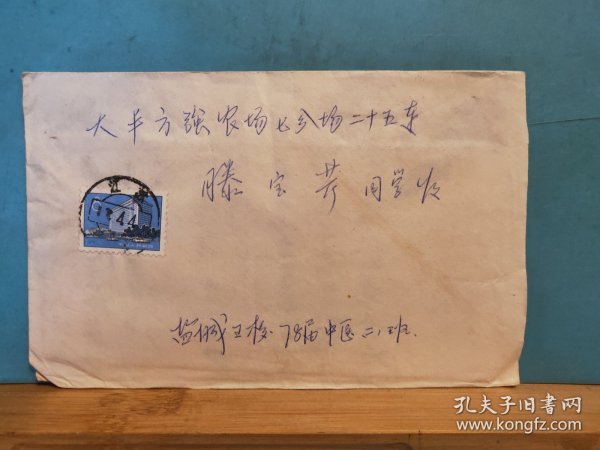 大丰方强农场七分场二十五东
滕宝芳同学收
盐城卫校78届中医二班.
孔夫子旧书网
www.kongfz.com